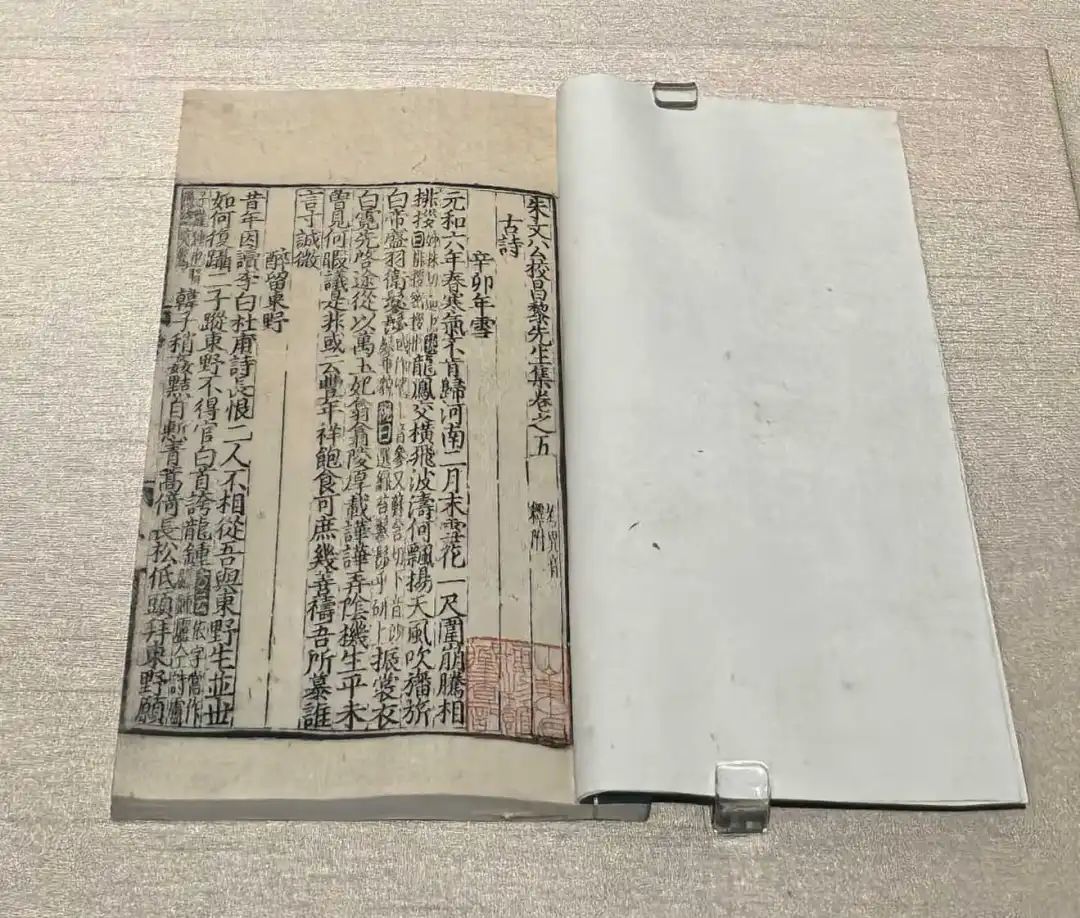 朱文公校昌黎先生集卷之五
古詩
辛卯年雪
元和六年春寒氣不肯歸河南二月末雪花一尺圍崩騰相
排拶龍鳳交橫飛波濤何飄揚天風吹旛旂
白帝盛羽衛鬖振裳衣
白霓先啓途從以萬玉妃翕翕陵厚載譁譁弄陰機生平未
曾見何暇議是非或云豐年祥飽食可庶幾善禱吾所慕誰
言寸誠微
醉留東野
昔年因讀李白杜甫詩長恨二人不相從吾與東野生並世
如何復躡二子蹤東野不得官白首誇龍鍾
韓子稍姦黠自慙青蒿倚長松低頭拜東野願